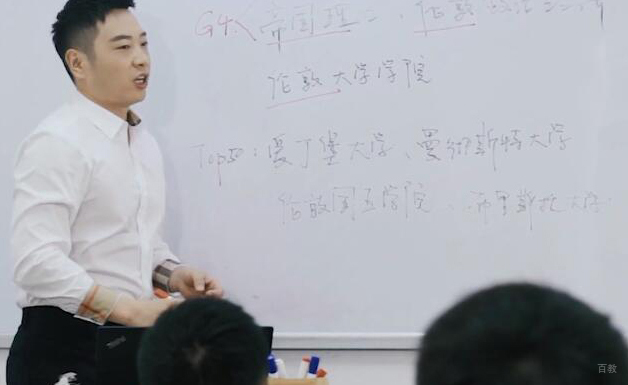 G4: 帝国理工、伦敦政治
伦敦大学学院
Top50: 爱丁堡大学、曼彻斯特大学
伦敦国王学院、布里斯托大学
百教